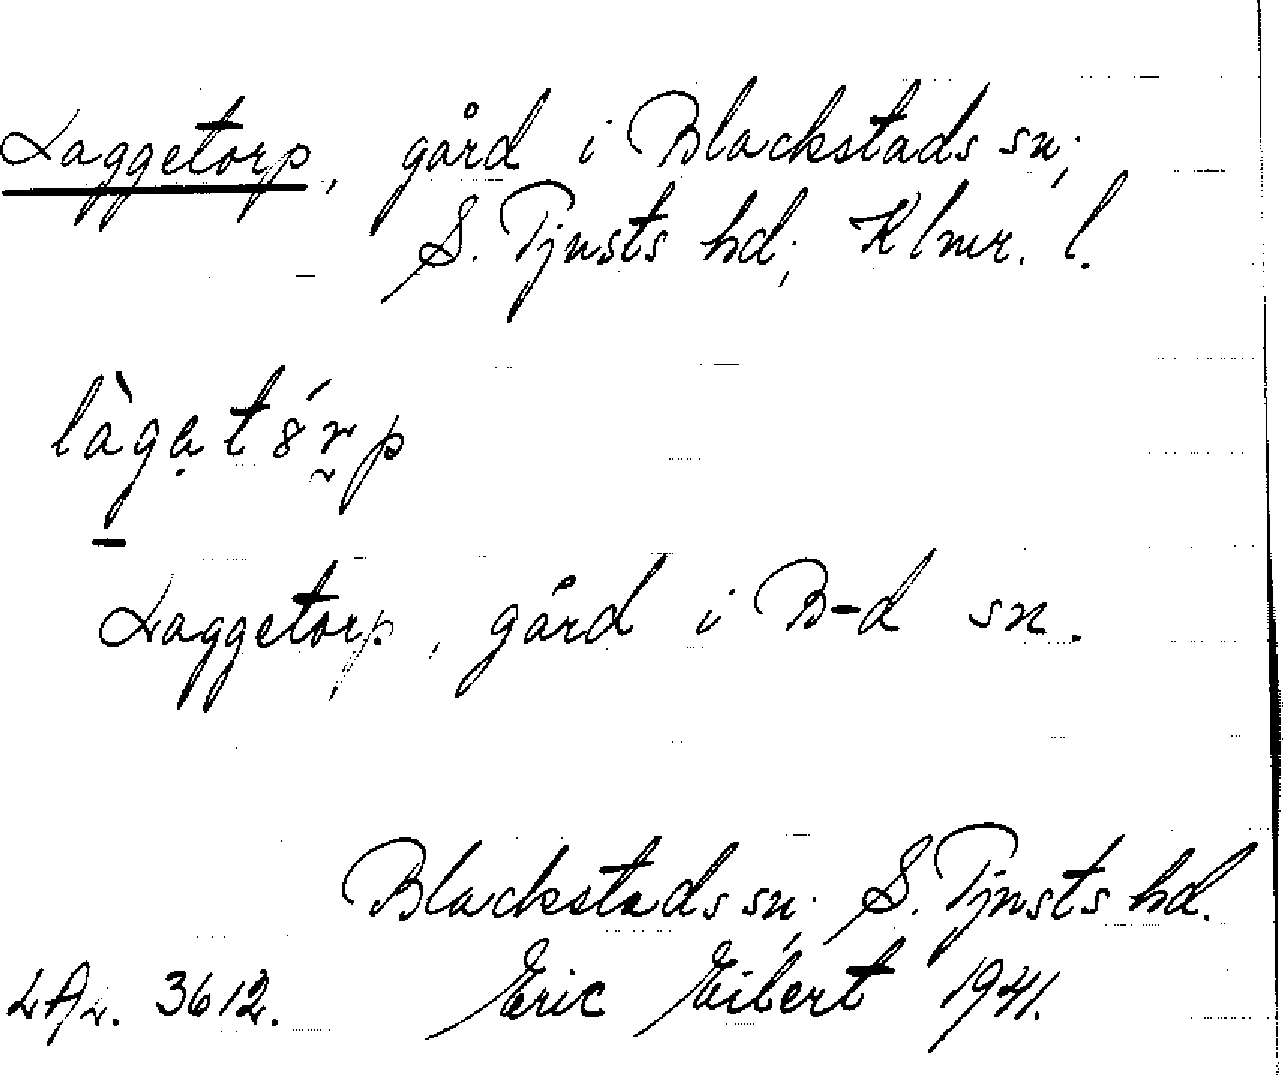 Laggetorp, gård i Blackstads sn;
S. Tjusts hd; Klmr. l.
Laggetorp, gård i B-d sn.
Blackstads sn; S. Tjusts hd.
3612. Eric Eibert 1941.